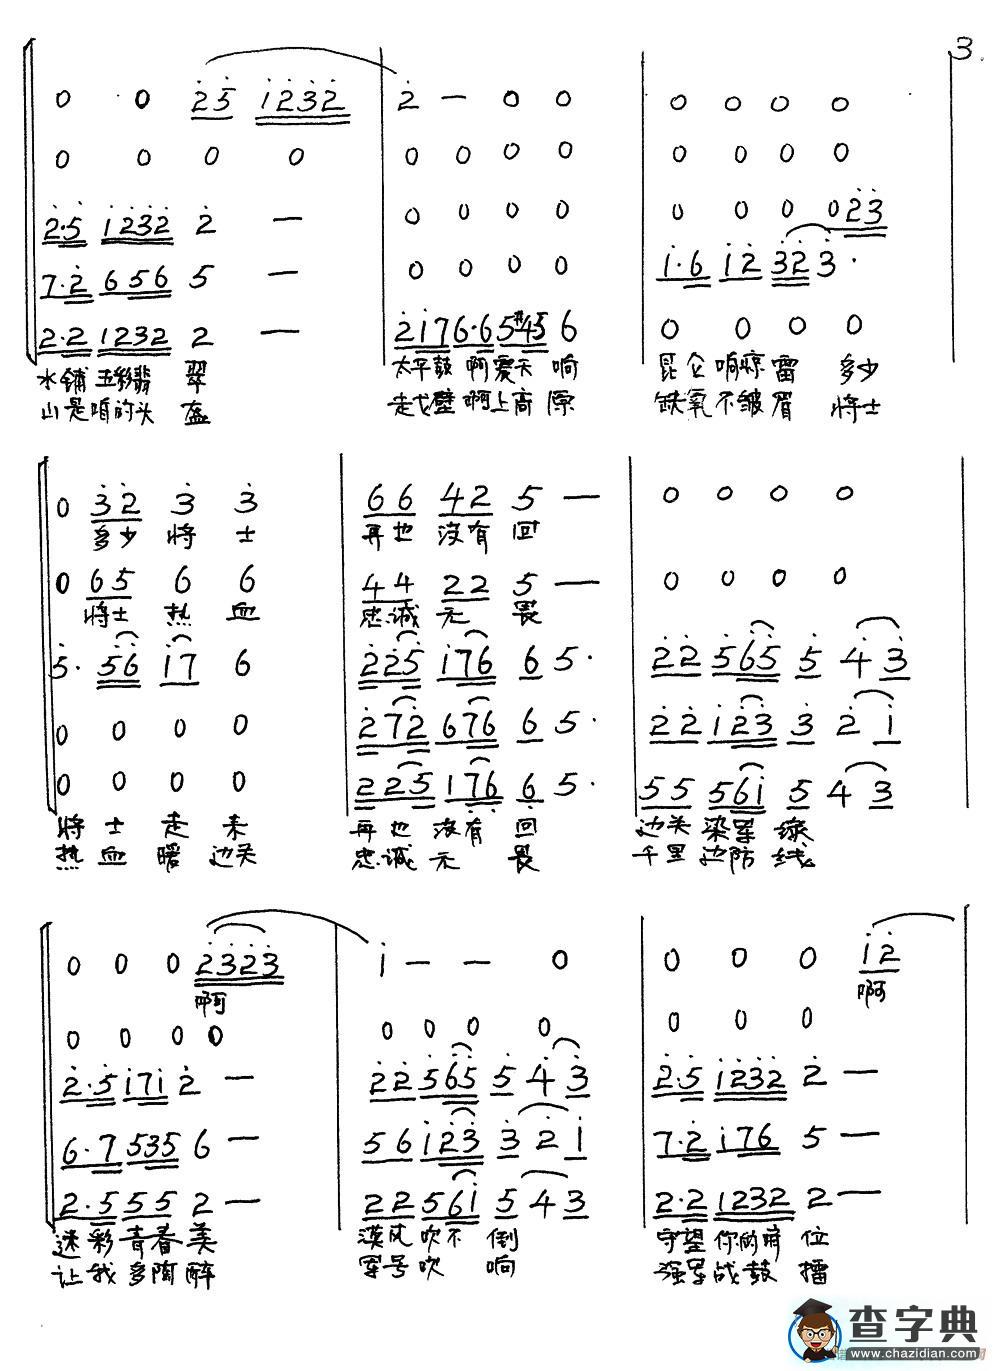 3.
0 0 2̇5̇ 1̇2̇3̇2̇ 2̇ — 0 0 0 0 0 0
0 0 0 0 0 0 0 0 0 0 0 0
2̇·5̇ 1̇2̇3̇2̇ 2̇ — 0 0 0 0 0 0 0 02̇3̇
7·2̇ 656 5 — 0 0 0 0 1̇·6 1̇2̇ 3̇2̇3̇·
2·2 1232 2 — 2̇1̇76·65#456 0 0 0 0
水铺五彩翡 翠 太平鼓 啊爱天 响 昆仑响惊雷 多少
山是咱的头 盔 走戈壁 啊上高 原 缺氧不皱眉 将士
0 3̇2̇ 3̇ 3̇ 66 42 5 — 0 0 0 0
多少 将 士 再也 没有 回
0 65 6 6 44 22 5 — 0 0 0 0
将士 热 血 忠诚 无 畏
5̇· 5̇6̇ 1̇7 6 2̇2̇5̇ 1̇76 6 5· 2̇2̇ 5̇6̇5̇ 5̇ 4̇ 3̇
0 0 0 0 2̇72̇ 676 6 5· 2̇2̇ 1̇2̇3̇ 3̇ 2̇ 1̇
0 0 0 0 225 176 6 5· 55 561̇ 5 4 3
将 士 走 来 再也 没有 回 边关 染军 绿
热 血 暖 边关 忠诚 无 畏 千里 边防 线
0 0 0 2̇3̇2̇3̇ 1̇ — — 0 0 0 0 1̇2̇
啊 啊
0 0 0 0 0 0 0 0 0 0 0
2̇·5̇ 1̇71̇ 2̇ — 2̇2̇ 5̇6̇5̇ 5̇ 4̇ 3̇ 2̇·5̇ 1̇2̇3̇2̇ 2̇ —
6·7 535 6 — 56 1̇2̇3̇ 3̇ 2̇ 1̇ 7·2̇ 1̇76 5 —
2·5 55 2 — 22 561̇ 5 4 3 2·2 1232 2 —
迷彩青春 美 漠风吹不 倒 守望 你的 位
让我多陶 醉 军号吹 响 强军战鼓 擂
查字典
www.chazidian.com